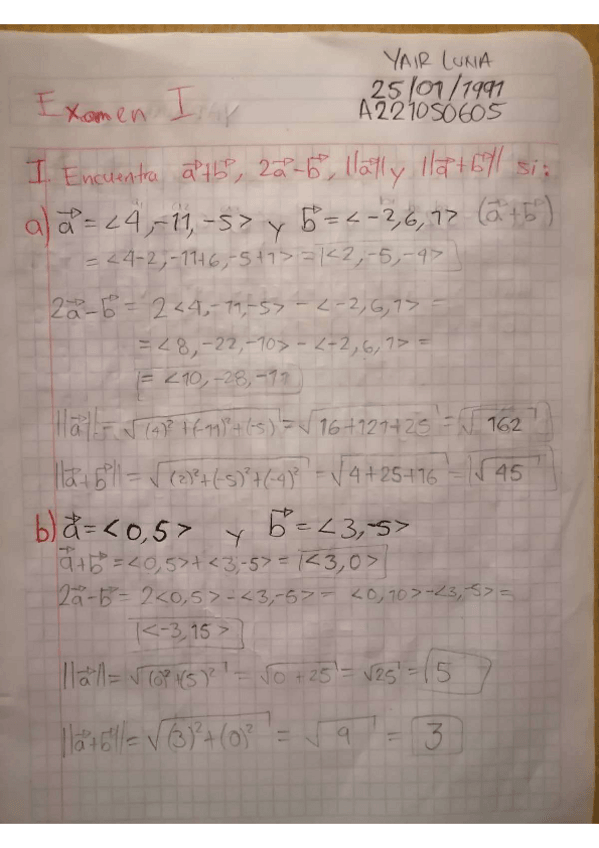 YAIR LUNA
25/01/1991
A221050605
Examen I
I. Encuentra a⃗+b⃗, 2a⃗-b⃗, ||a⃗|| y ||a⃗+b⃗|| si:
a) a⃗=<4,-11,-5> y b⃗=<-2,6,1> (a⃗+b⃗)
= <4-2,-11+6,-5+1> = <2,-5,-4>
2a⃗-b⃗ = 2<4,-11,-5> - <-2,6,1> =
= <8,-22,-10> - <-2,6,1> =
= <10,-28,-11
||a⃗|| = √(4)²+(-11)²+(-5)² = √16+121+25 = √162
||a⃗+b⃗|| = √(2)²+(-5)²+(-4)² = √4+25+16 = √45
b) a⃗=<0,5> y b⃗=<3,-5>
a⃗+b⃗ = <0,5>+<3,-5> = <3,0>
2a⃗-b⃗ = 2<0,5>-<3,-5> = <0,10>-<3,-5> =
<-3,15>
||a⃗|| = √(0)²+(5)² = √0+25 = √25 = 5
||a⃗+b⃗|| = √(3)²+(0)² = √9 = 3